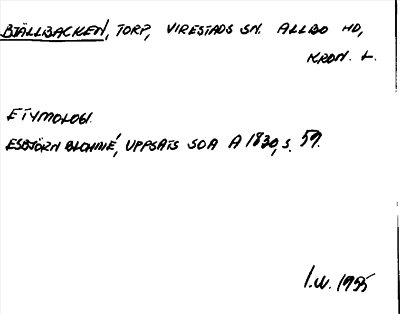 BJÄLLBACKEN, TORP, VIRESTADS SN. ALLBO HD,
KRON. L.
ETYMOLOGI.
ESBJÖRN BLOHMÉ, UPPSATS SOA A 1830, S. 59.
I.W. 1955